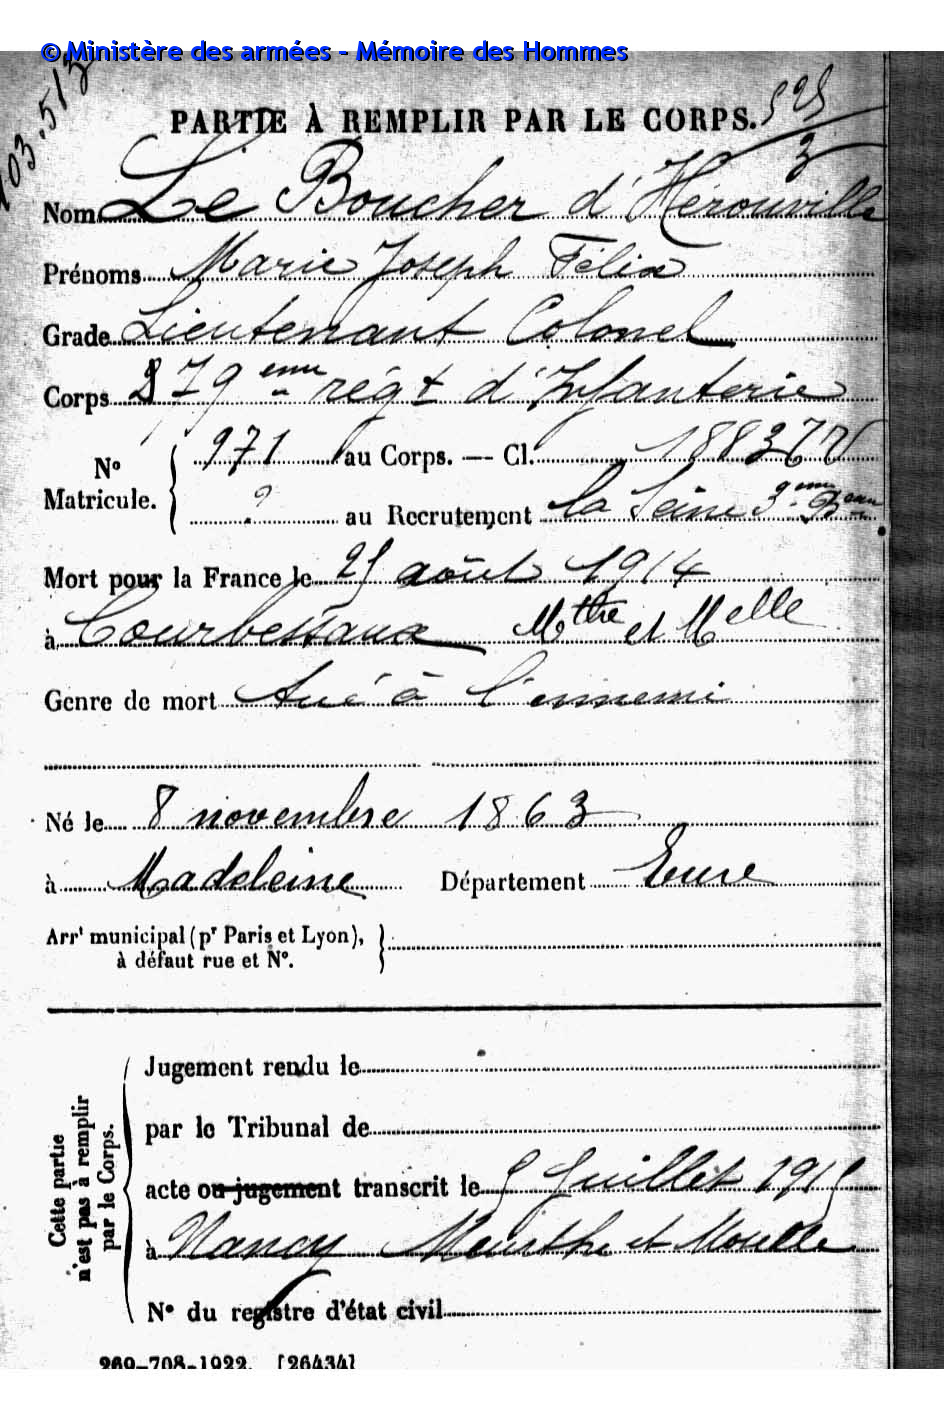 © Ministère des armées - Mémoire des Hommes
103.513
525
3
PARTIE À REMPLIR PAR LE CORPS.
Nom Le Boucher d'Hérouville
Prénoms Marie Joseph Félix
Grade Lieutenant Colonel
Corps 279 eme régt d'Infanterie
N° Matricule. { 971 au Corps. — Cl. 1883
? au Recrutement la Seine 3eme Beau
Mort pour la France le 25 août 1914
à Courbessaux Mthe et Melle
Genre de mort Tué à l'ennemi
Né le 8 novembre 1863
à Madeleine Département Eure
Arrt municipal (pr Paris et Lyon),
à défaut rue et N°.
Cette partie n'est pas à remplir par le Corps.
Jugement rendu le
par le Tribunal de
acte ou jugement transcrit le 5 Juillet 1915
à Nancy Meurthe et Moselle
N° du registre d'état civil
269-708-1922. [26434]